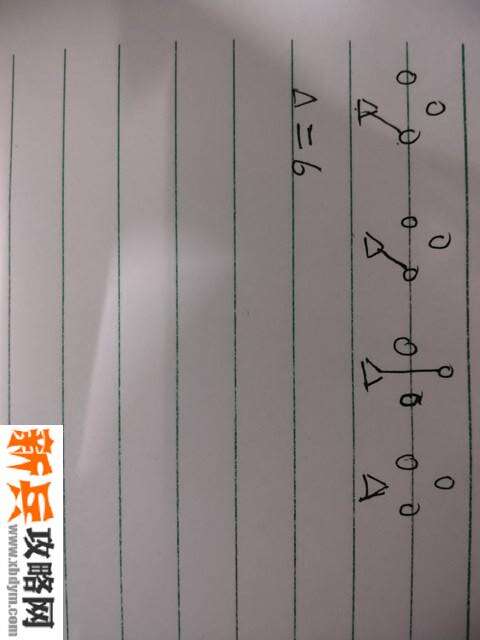 △=6
新兵攻略网
www.xbdym.com